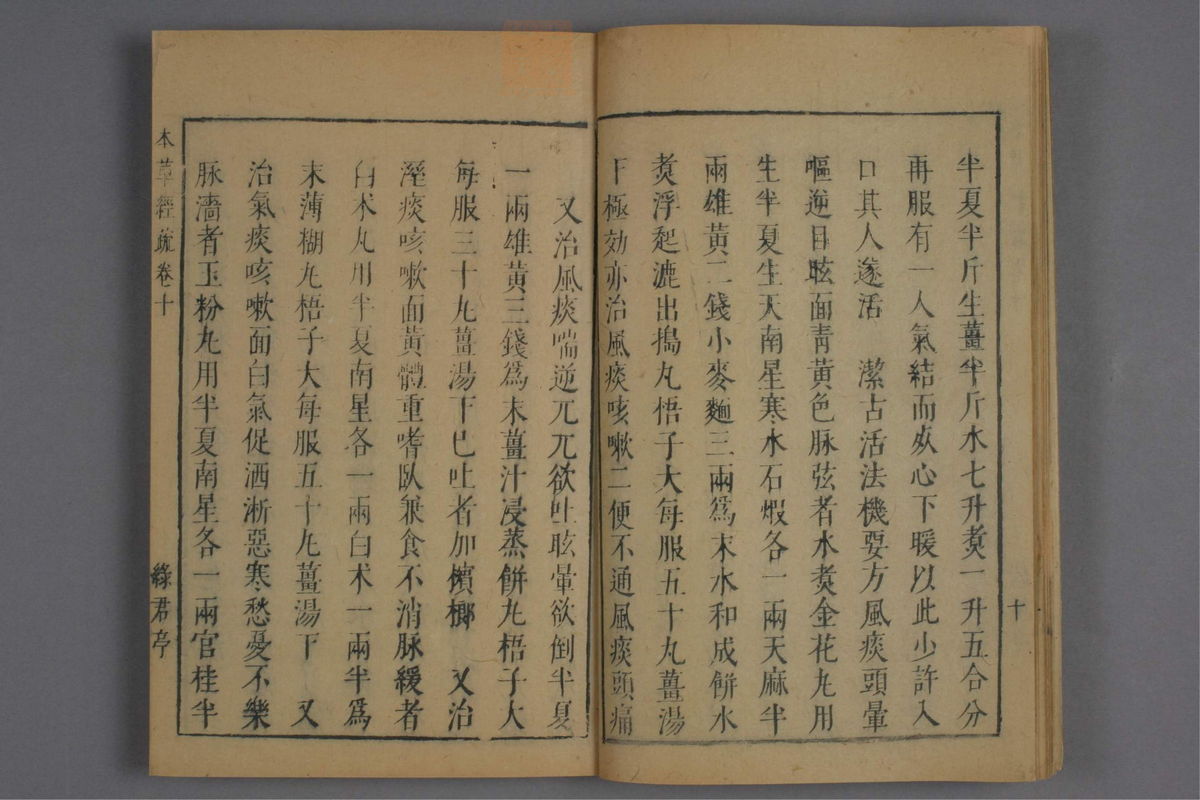 十
半夏半斤生薑半斤水七升煑一升五合分
再服有一人氣結而死心下暖以此少許入
口其人遂活　潔古活法機要方風痰頭暈
嘔逆目眩面青黃色脉弦者水煑金花丸用
生半夏生天南星寒水石煅各一兩天麻半
兩雄黃二錢小麥麵三兩爲末水和成餅水
煑浮起漉出搗丸梧子大每服五十丸薑湯
下極効亦治風痰咳嗽二便不通風痰頭痛
又治風痰喘逆兀兀欲吐眩暈欲倒半夏
一兩雄黃三錢爲末薑汁浸蒸餅丸梧子大
每服三十丸薑湯下已吐者加檳榔　又治
溼痰咳嗽面黃體重嗜臥兼食不消脉緩者
白朮丸用半夏南星各一兩白朮一兩半爲
末薄糊丸梧子大每服五十丸薑湯下　又
治氣痰咳嗽面白氣促洒淅惡寒愁憂不樂
脉濇者玉粉丸用半夏南星各一兩官桂半
本草經疏卷十
綠君亭